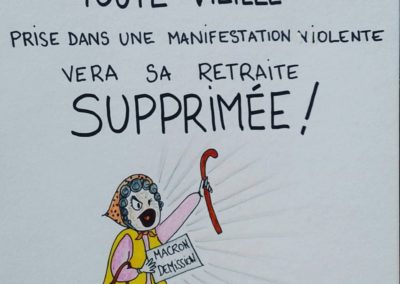 TOUTE VIEILLE
PRISE DANS UNE MANIFESTATION VIOLENTE
VERA SA RETRAITE
SUPPRIMÉE !
MACRON
DEMISSION